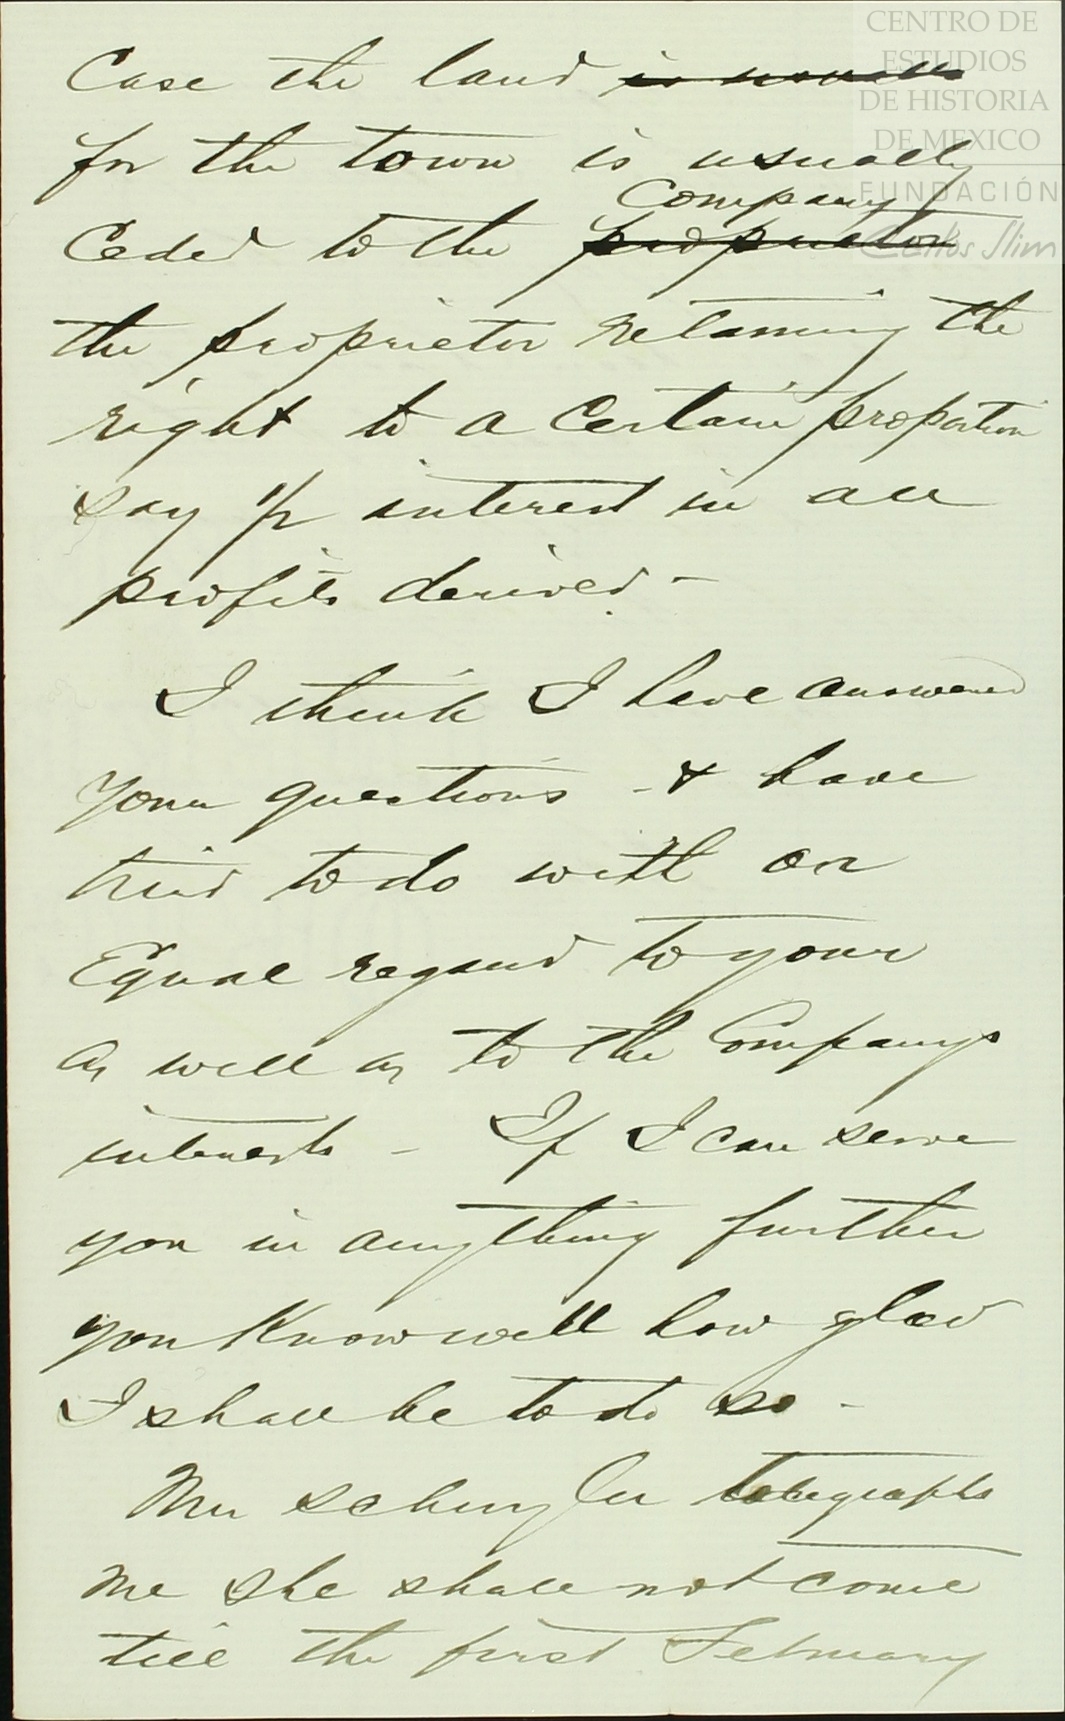 CENTRO DE
ESTUDIOS
DE HISTORIA
DE MEXICO
FUNDACIÓN
Carlos Slim
Case the land is usually
for the town is usually
Company
Ceded to the proprietor
the proprietor retaining the
right to a Certain proportion
say 1/2 interest in all
profits derived -
I think I have answered
your questions - & have
tried to do with an
Equal regard to your
as well as to the Companys
interests - If I can serve
you in anything further
you Know well how glad
I shall be to do so -
Mrs telegraphs
me she shall not come
till the first February